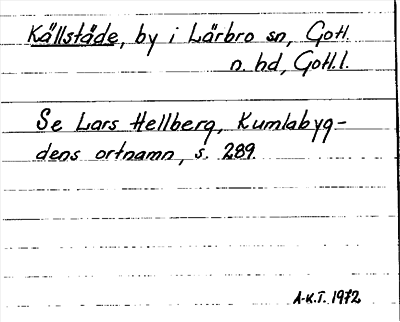 Källstäde, by i Lärbro sn, Gotl.
n. hd, Gotl. l.
Se Lars Hellberg, Kumlabyg-
dens ortnamn, s. 289.
A-K.T. 1972